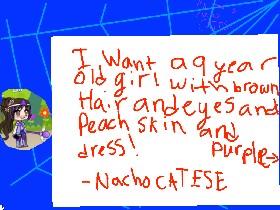 I Want a 9 year
old girl with brown
Hair and eyes and
Peach skin and
dress! purple→
-Nacho CATESE